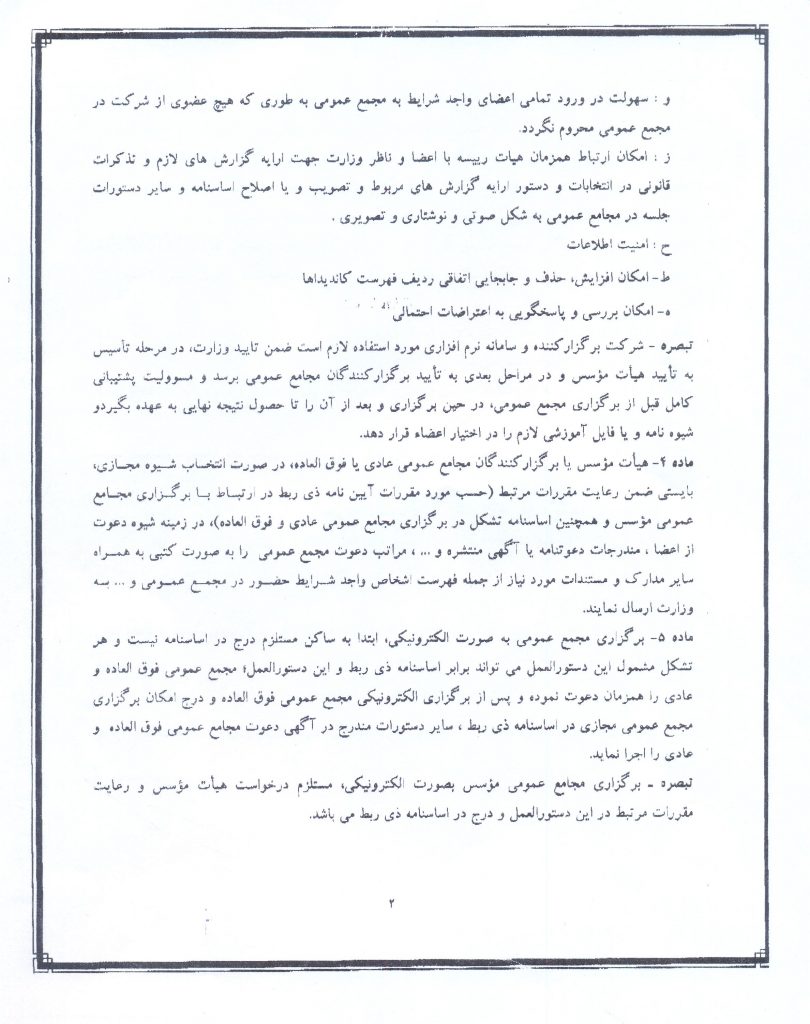 و : سهولت در ورود تمامی اعضای واجد شرایط به مجمع عمومی به طوری که هیچ عضوی از شرکت در
مجمع عمومی محروم نگردد.
ز : امکان ارتباط همزمان هیات رییسه با اعضا و ناظر وزارت جهت ارایه گزارش های لازم و تذکرات
قانونی در انتخابات و دستور ارایه گزارش های مربوط و تصویب و یا اصلاح اساسنامه و سایر دستورات
جلسه در مجامع عمومی به شکل صوتی و نوشتاری و تصویری .
ح : امنیت اطلاعات
ط- امکان افزایش، حذف و جابجایی اتفاقی ردیف فهرست کاندیداها
ه- امکان بررسی و پاسخگویی به اعتراضات احتمالی
تبصره - شرکت برگزارکننده و سامانه نرم افزاری مورد استفاده لازم است ضمن تایید وزارت، در مرحله تأسیس
به تأیید هیأت مؤسس و در مراحل بعدی به تأیید برگزارکنندگان مجامع عمومی برسد و مسوولیت پشتیبانی
کامل قبل از برگزاری مجمع عمومی، در حین برگزاری و بعد از آن را تا حصول نتیجه نهایی به عهده بگیردو
شیوه نامه و یا فایل آموزشی لازم را در اختیار اعضاء قرار دهد.
ماده ۴- هیأت مؤسس یا برگزارکنندگان مجامع عمومی عادی یا فوق العاده، در صورت انتخاب شیوه مجازی،
بایستی ضمن رعایت مقررات مرتبط (حسب مورد مقررات آیین نامه ذی ربط در ارتباط با برگزاری مجامع
عمومی مؤسس و همچنین اساسنامه تشکل در برگزاری مجامع عمومی عادی و فوق العاده)، در زمینه شیوه دعوت
از اعضا ، مندرجات دعوتنامه یا آگهی منتشره و ... ، مراتب دعوت مجمع عمومی را به صورت کتبی به همراه
سایر مدارک و مستندات مورد نیاز از جمله فهرست اشخاص واجد شرایط حضور در مجمع عمومی و ... به
وزارت ارسال نمایند.
ماده ۵- برگزاری مجمع عمومی به صورت الکترونیکی، ابتدا به ساکن مستلزم درج در اساسنامه نیست و هر
تشکل مشمول این دستورالعمل می تواند برابر اساسنامه ذی ربط و این دستورالعمل؛ مجمع عمومی فوق العاده و
عادی را همزمان دعوت نموده و پس از برگزاری الکترونیکی مجمع عمومی فوق العاده و درج امکان برگزاری
مجمع عمومی مجازی در اساسنامه ذی ربط ، سایر دستورات مندرج در آگهی دعوت مجامع عمومی فوق العاده و
عادی را اجرا نماید.
تبصره ـ برگزاری مجامع عمومی مؤسس بصورت الکترونیکی، مستلزم درخواست هیأت مؤسس و رعایت
مقررات مرتبط در این دستورالعمل و درج در اساسنامه ذی ربط می باشد.
۲